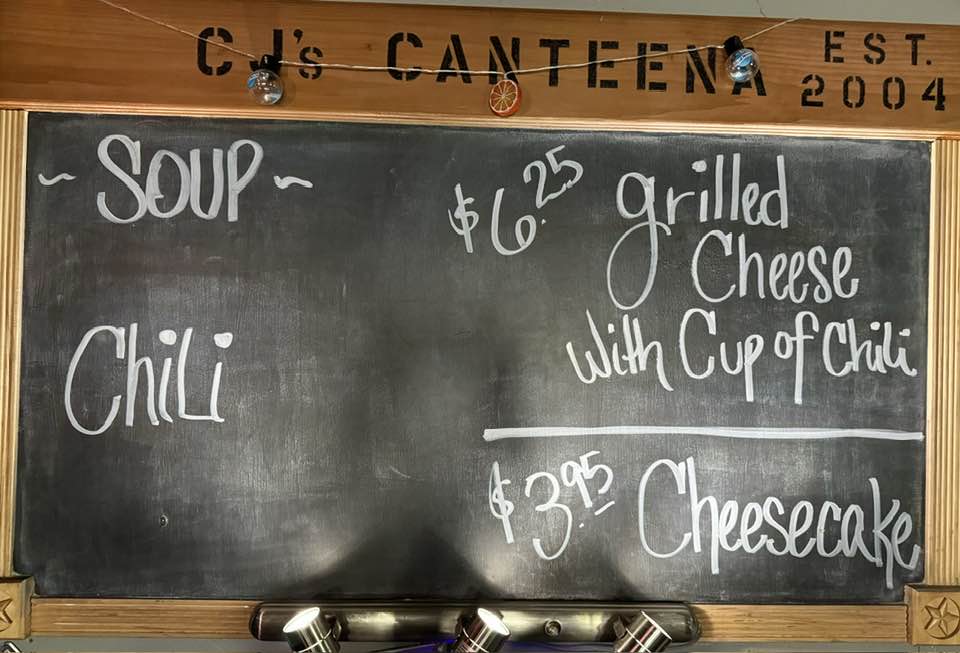 CJ's CANTEENA EST. 2004
~ SOUP ~
Chili
$6.25 grilled
Cheese
with Cup of Chili
$3.95 Cheesecake